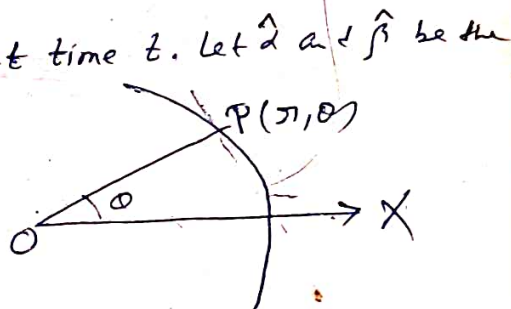 t time t. Let α̂ and β̂ be the
P(r,θ)
θ
O
X